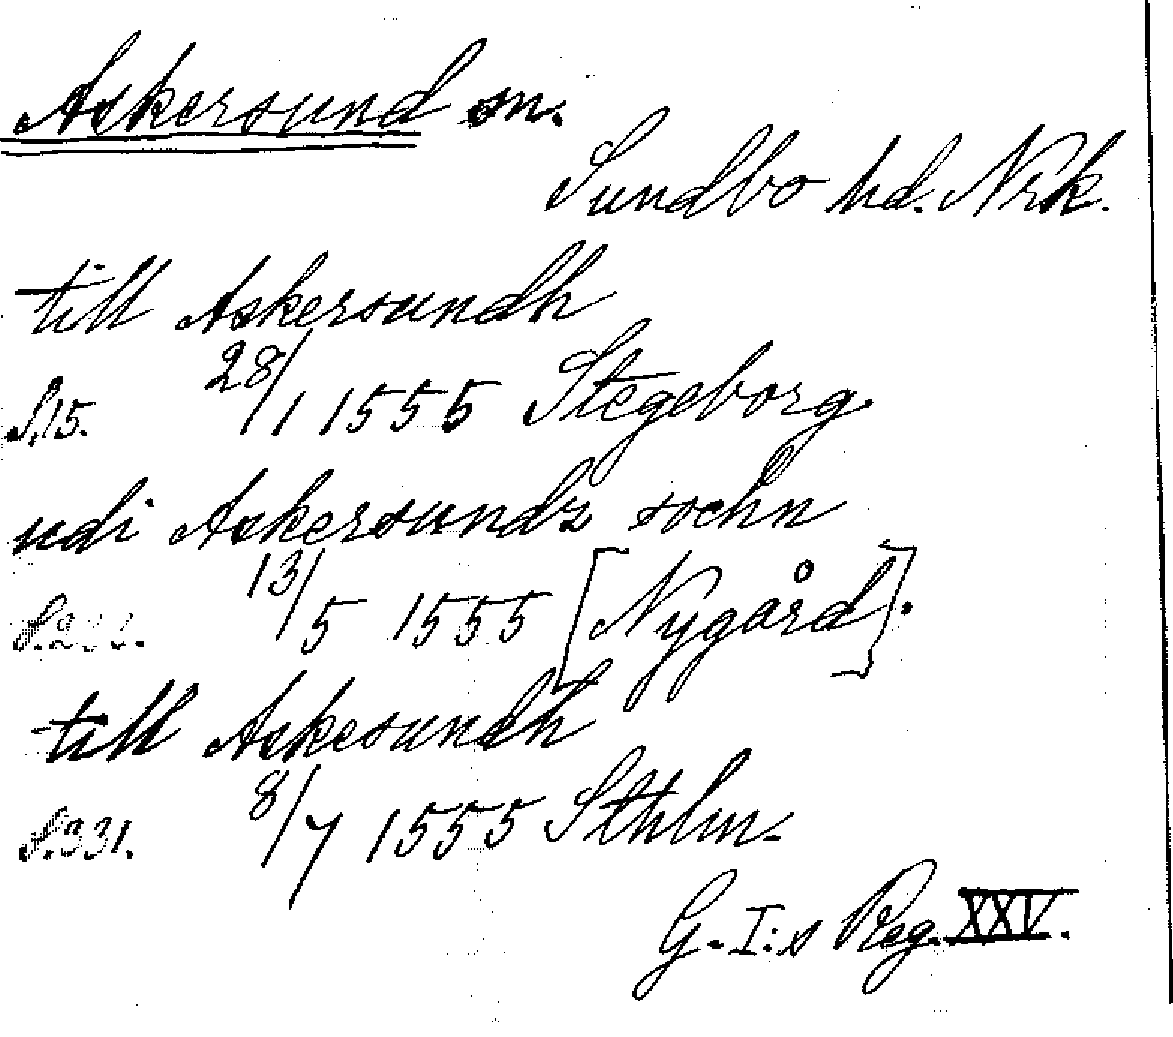 Askersund sn.
Sundbo hd. Nrk.
till Askersundh
S.15. 28/1 1555 Stegeborg.
udi Askersundz sochn
13/5 1555 [Nygård].
till Askesundh
S.331. 8/7 1555 Sthlm.
G. I:s Reg. XXV.